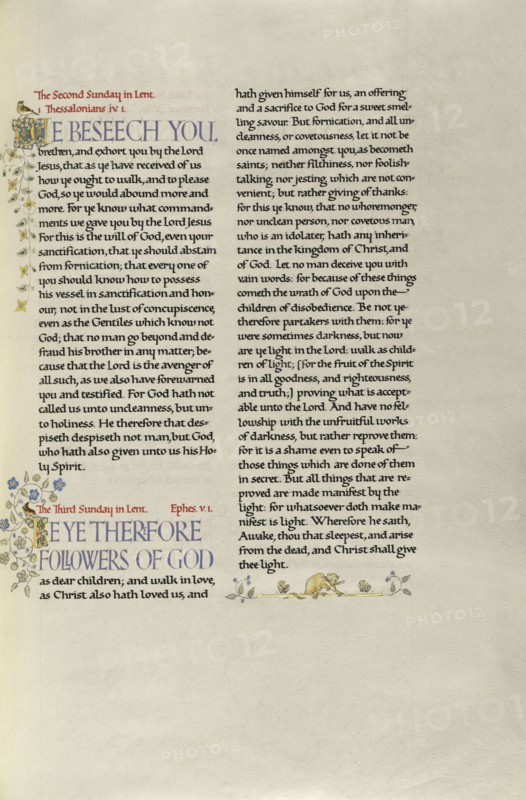 The Second Sunday in Lent.
1 Thessalonians iv. 1.
WE BESEECH YOU,
brethren, and exhort you by the Lord
Jesus, that as ye have received of us
how ye ought to walk, and to please
God, so ye would abound more and
more. For ye know what command-
ments we gave you by the Lord Jesus
For this is the will of God, even your
sanctification, that ye should abstain
from fornication; that every one of
you should know how to possess
his vessel in sanctification and hon-
our; not in the lust of concupiscence,
even as the Gentiles which know not
God; that no man go beyond and de-
fraud his brother in any matter; be-
cause that the Lord is the avenger of
all such, as we also have forewarned
you and testified. For God hath not
called us unto uncleanness, but un-
to holiness. He therefore that des-
piseth despiseth not man, but God,
who hath also given unto us his Ho-
ly Spirit.
The Third Sunday in Lent. Ephes. v. 1.
BE YE THEREFORE
FOLLOWERS OF GOD
as dear children; and walk in love,
as Christ also hath loved us, and
hath given himself for us, an offering
and a sacrifice to God for a sweet smel-
ling savour. But fornication, and all un-
cleanness, or covetousness, let it not be
once named amongst you, as becometh
saints; neither filthiness, nor foolish-
talking, nor jesting, which are not con-
venient; but rather giving of thanks:
for this ye know, that no whoremonger,
nor unclean person, nor covetous man,
who is an idolater, hath any inheri-
tance in the kingdom of Christ, and
of God. Let no man deceive you with
vain words: for because of these things
cometh the wrath of God upon the
children of disobedience. Be not ye
therefore partakers with them: for ye
were sometimes darkness, but now
are ye light in the Lord: walk as child-
ren of light; (for the fruit of the Spirit
is in all goodness, and righteousness,
and truth;) proving what is accept-
able unto the Lord. And have no fel-
lowship with the unfruitful works
of darkness, but rather reprove them:
for it is a shame even to speak of
those things which are done of them
in secret. But all things that are re-
proved are made manifest by the
light: for whatsoever doth make ma-
nifest is light. Wherefore he saith,
Awake, thou that sleepest, and arise
from the dead, and Christ shall give
thee light.
PHOTO12